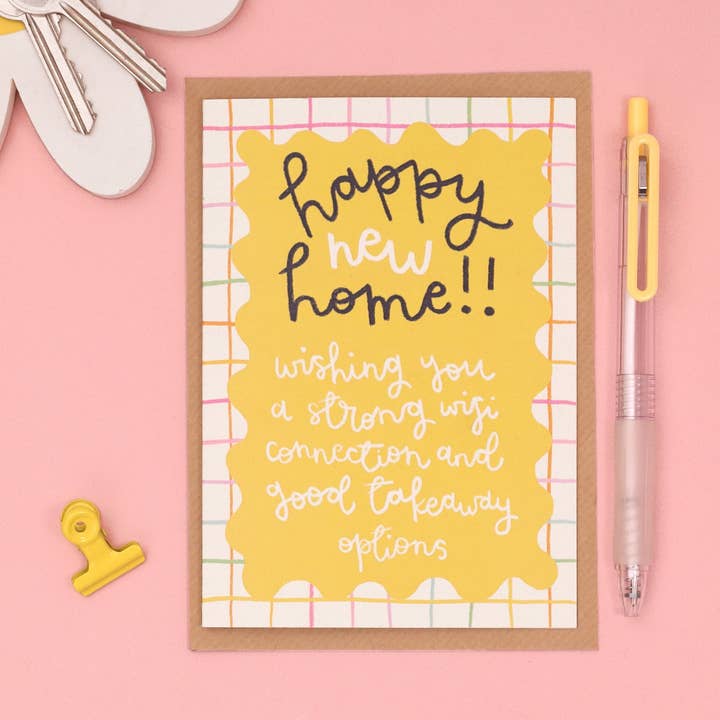 happy
new
home!!
wishing you
a strong wifi
connection and
good takeaway
options